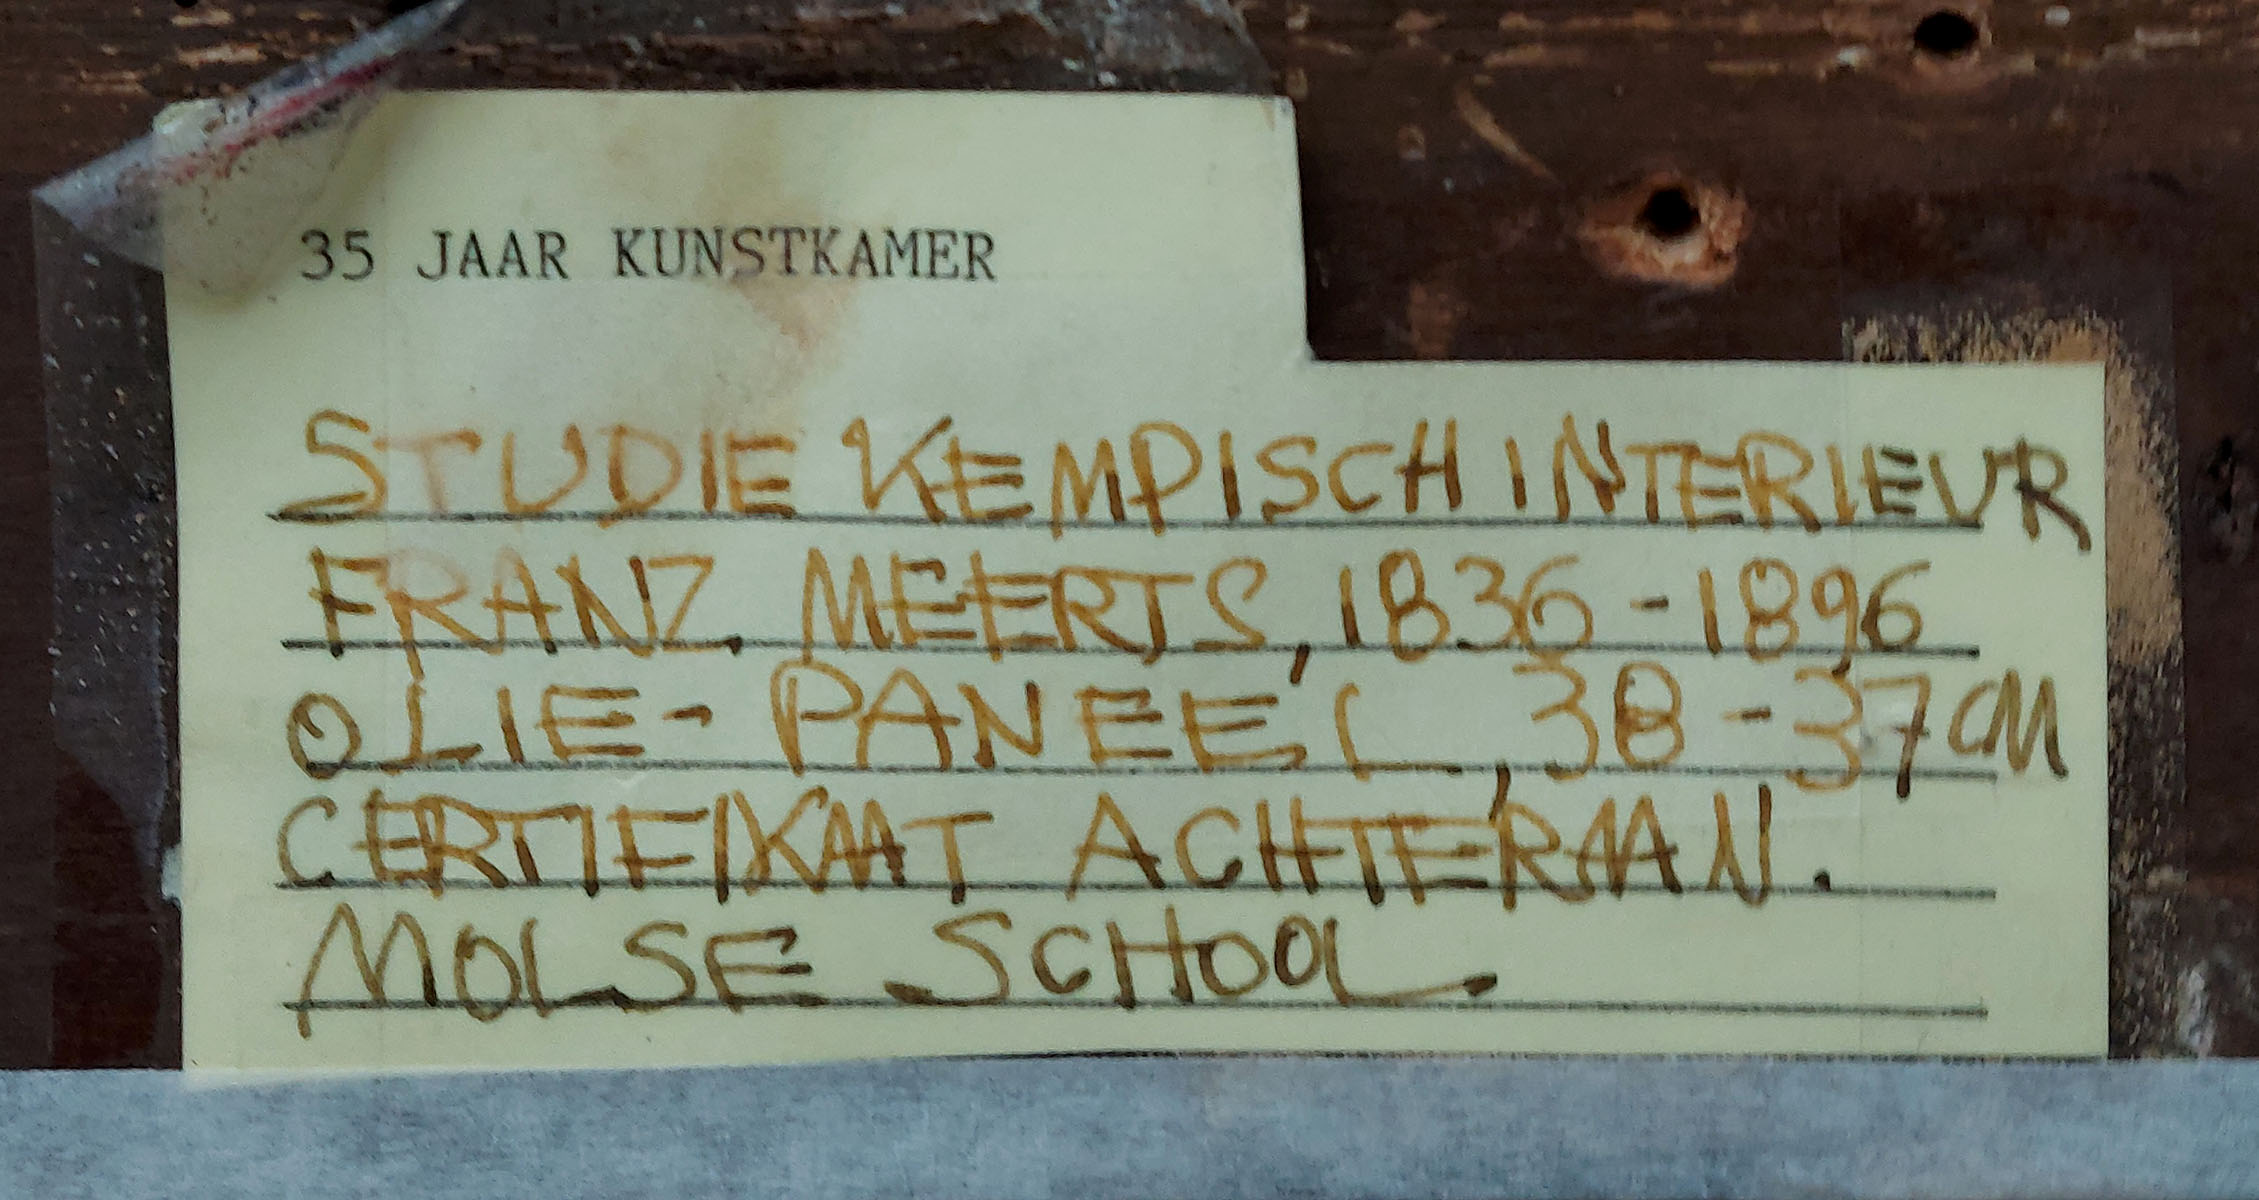 35 JAAR KUNSTKAMER
STUDIE KEMPISCH INTERIEUR
FRANZ. MEERTS, 1836-1896
OLIE- PANEEL, 38-37CM
CERTIFIKAAT ACHTERAAN.
MOLSE SCHOOL.